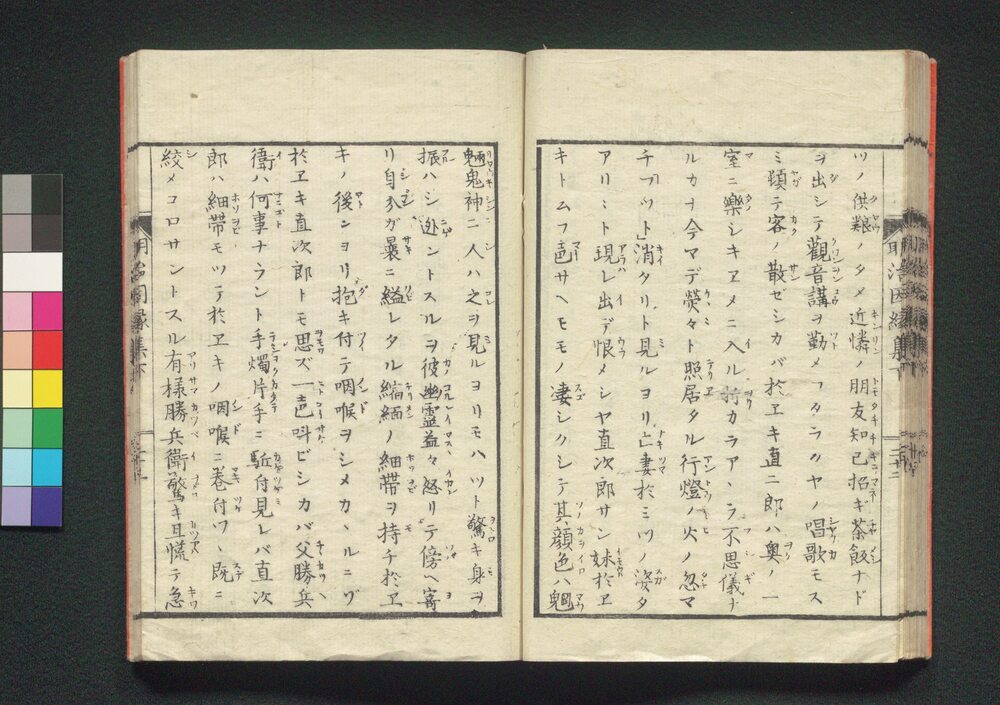 ツノ供粮ノタメ近憐ノ朋友知己招ギ茶飯ナド
ヲ出シテ觀音講ヲ勤メフタラクヤノ唱歌モス
ミ頓テ客ノ散ゼシカバ於エキ直二郎ハ奥ノ一
室ニ樂シキヱメニ入ル折カラアヽラ不思儀ナ
ルカナ今マデ熒々ト照居タル行燈ノ火ノ忽マ
チフツト消タリト見ルヨリ亡妻於ミツノ姿タ
アリ〳〵ト現レ出デ恨メシヤ直次郎サン妹於ヱ
キトムフ声サヘモノ凄シクシテ其顔色ハ魍
魎鬼神二人ハ之ヲ見ルヨリモハツト驚キ身ヲ
振ハシ迯ントスルヲ彼幽霊益々怒リテ傍ヘ寄
リ自分ガ曩ニ縊レタル縮緬ノ細帯ヲ持チ於ヱ
キノ後ヨリ抱キ付テ咽喉ヲシメカヽルニゾ
於ヱキ直次郎トモ思ズ一声呌ビシカバ父勝兵
衛ハ何事ナラント手燭片手ニ駈付見レバ直次
郎ハ細帯モツテ於ヱキノ咽喉ニ巻付ツヽ既ニ
絞メコロサントスル有様勝兵衛驚キ且慌テ急
明治因縁集下